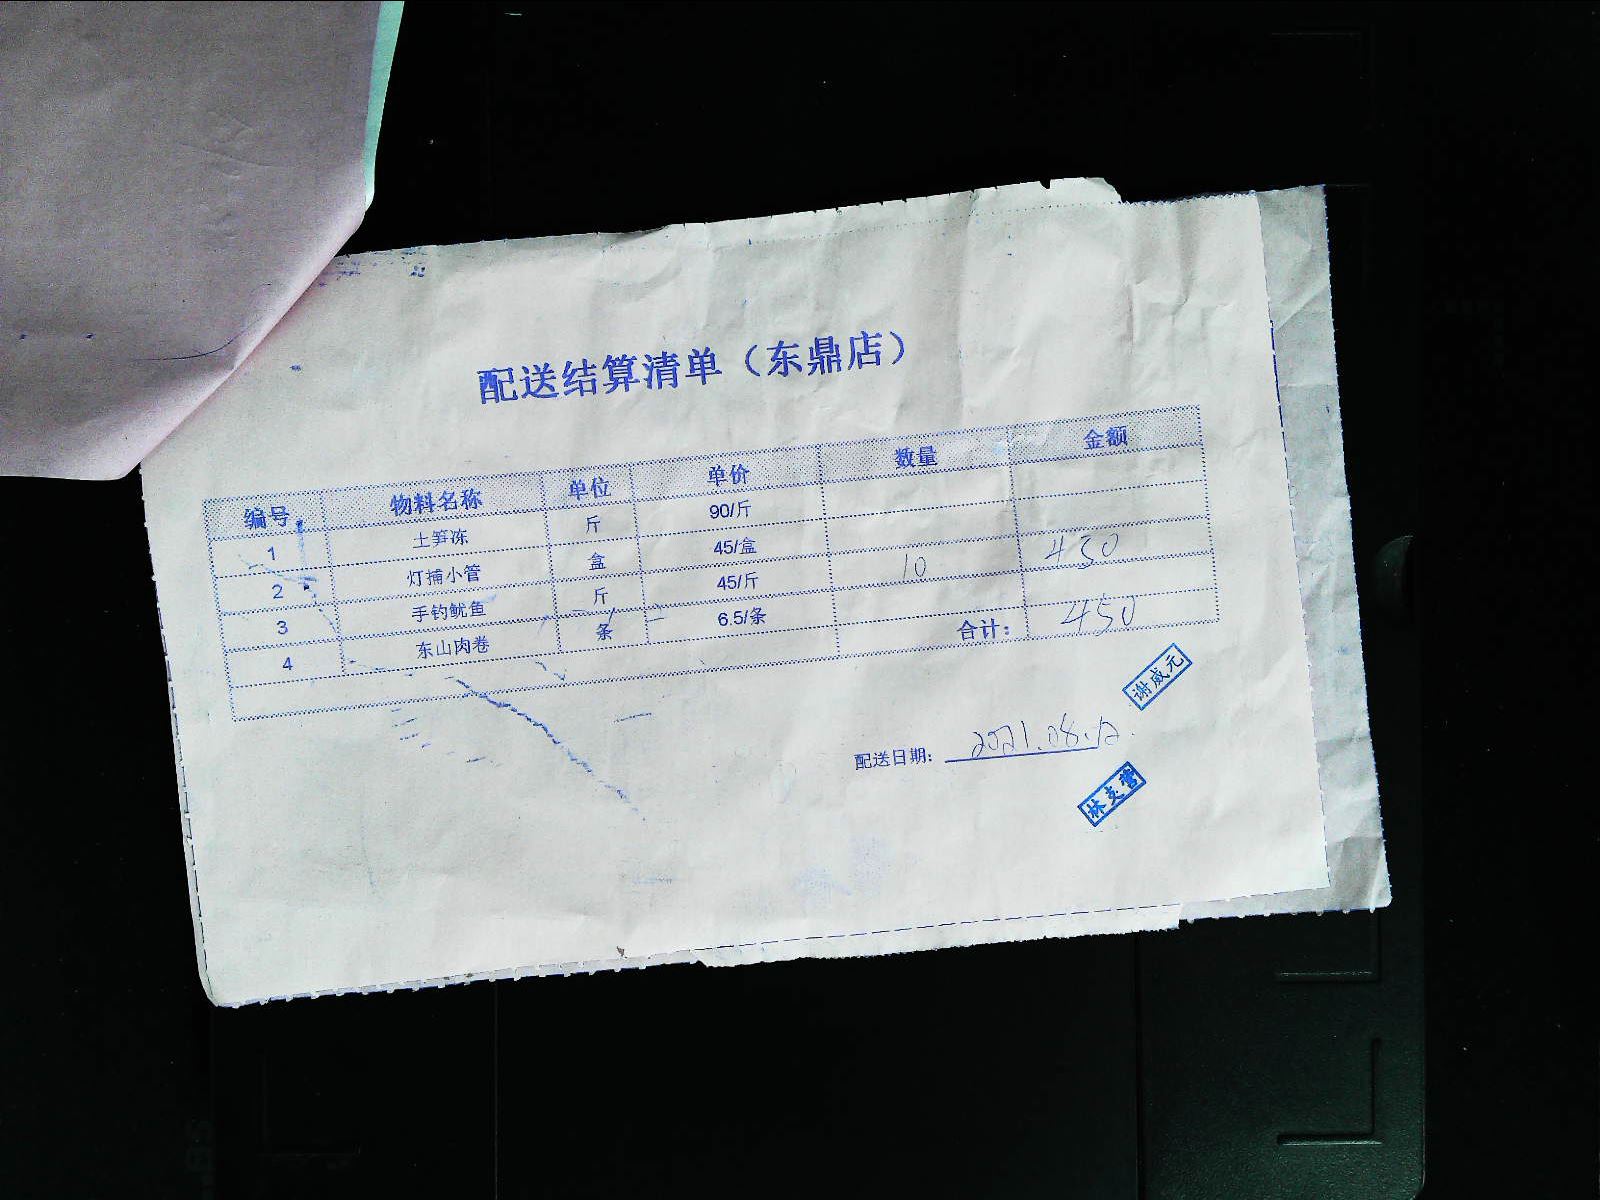 配送结算清单（东鼎店）
编号 物料名称 单位 单价 数量 金额
1 土笋冻 斤 90/斤
2 灯捕小管 盒 45/盒
3 手钓鱿鱼 斤 45/斤 10 450
4 东山肉卷 条 6.5/条
合计： 450
谢威元
配送日期： 2021.08.12.